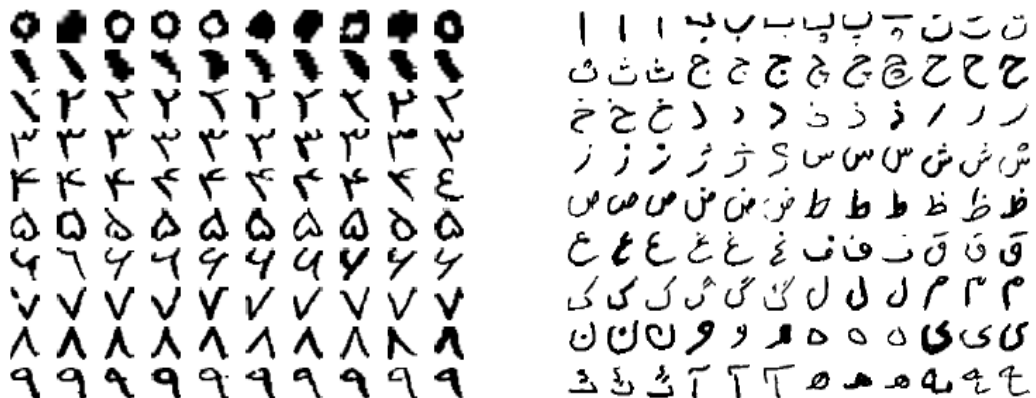 ۰ ۰ ۰ ۰ ۰ ۰ ۰ ۰ ۰ ۰
۱ ۱ ۱ ۱ ۱ ۱ ۱ ۱ ۱ ۱
۲ ۲ ۲ ۲ ۲ ۲ ۲ ۲ ۲ ۲
۳ ۳ ۳ ۳ ۳ ۳ ۳ ۳ ۳ ۳
۴ ۴ ۴ ۴ ۴ ۴ ۴ ۴ ۴ ٤
۵ ۵ ۵ ۵ ۵ ۵ ۵ ۵ ۵ ۵
۶ ٦ ۶ ۶ ۶ ۶ ۶ ۶ ۶ ۶
۷ ۷ ۷ ۷ ۷ ۷ ۷ ۷ ۷ ۷
۸ ۸ ۸ ۸ ۸ ۸ ۸ ۸ ۸ ۸
۹ ۹ ۹ ۹ ۹ ۹ ۹ ۹ ۹ ۹
ا ا ا ب ب ب پ پ پ ت ت ت
ث ث ث ج ج ج چ چ چ ح ح ح
خ خ خ د د د ذ ذ ذ ر ر ر
ز ز ز ژ ژ ژ س س س ش ش ش
ص ص ص ض ض ض ط ط ط ظ ظ ظ
ع ع ع غ غ غ ف ف ف ق ق ق
ک ک ک گ گ گ ل ل ل م م م
ن ن ن و و و ه ه ه ی ی ی
آ آ آ ه ه ه